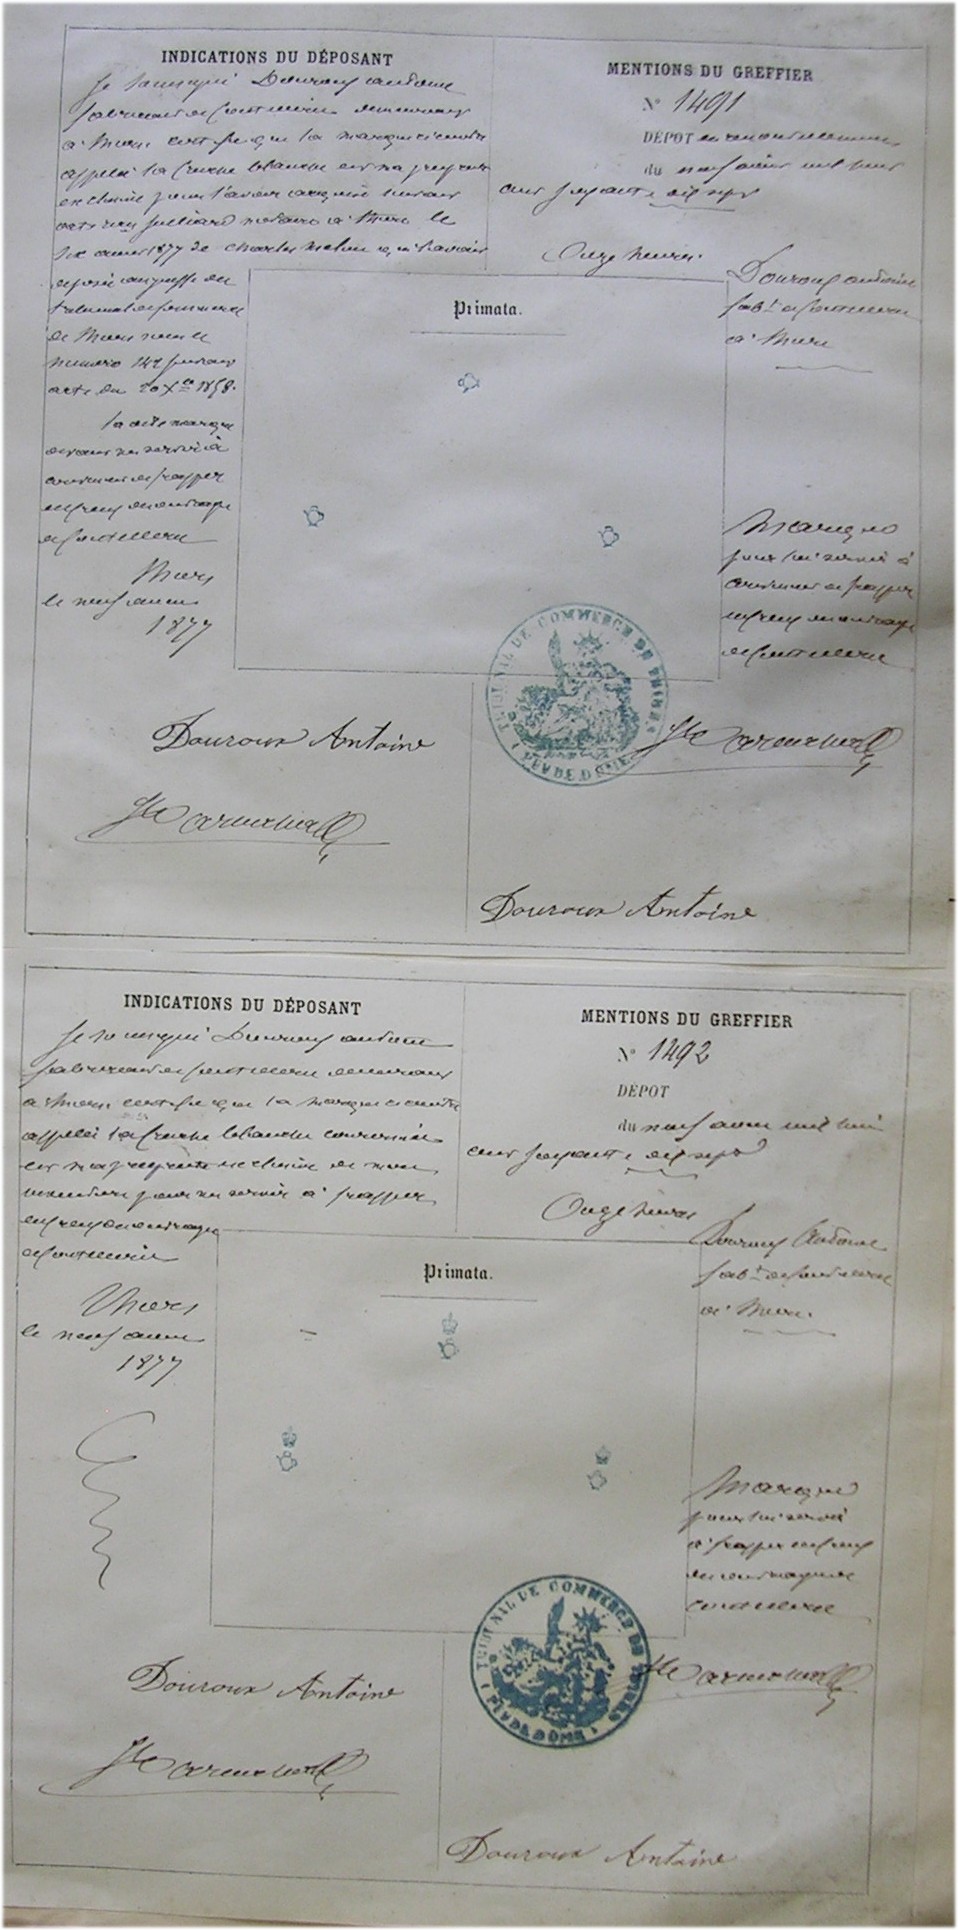 INDICATIONS DU DÉPOSANT
Je soussigné Douroux antoine
fabricant de coutellerie demeurant
à Thiers certifie que la marque ci contre
appelée la Cruche blanche est ma propriété
exclusive pour l'avoir acquise suivant
acte reçu notaire à Thiers le
six avril 1877 de Charles qui l'avait
déposée au greffe du
tribunal de commerce
de Thiers sous le
numero 142 suivant
acte du 20 Xbre 1858.
la dite marque
devant me servir à
continuer de frapper
de coutellerie
Thiers
le neuf avril
1877
Douroux Antoine
MENTIONS DU GREFFIER
N° 1491
DÉPOT en renouvellement
du neuf avril mil huit
cent soixante dix sept
Onze heures.
Douroux antoine
fabt de coutellerie
à Thiers
Primata.
Marque
pour lui servir à
continuer de frapper
de coutellerie
TRIBUNAL DE COMMERCE DE THIERS
( PUY DE DÔME )
Douroux Antoine
INDICATIONS DU DÉPOSANT
Je soussigné Douroux antoine
fabricant de coutellerie demeurant
à Thiers certifie que la marque ci contre
appelée la Cruche blanche couronnée
est ma propriété exclusive de mon
invention pour me servir à frapper
de coutellerie
Thiers
le neuf avril
1877
Douroux Antoine
MENTIONS DU GREFFIER
N° 1492
DÉPOT
du neuf avril mil huit
cent soixante dix sept
Onze heures
Douroux Antoine
fabt de coutellerie
à Thiers.
Primata.
Marque
pour lui servir
à frapper
coutellerie
TRIBUNAL DE COMMERCE DE THIERS
( PUY DE DÔME )
Douroux Antoine